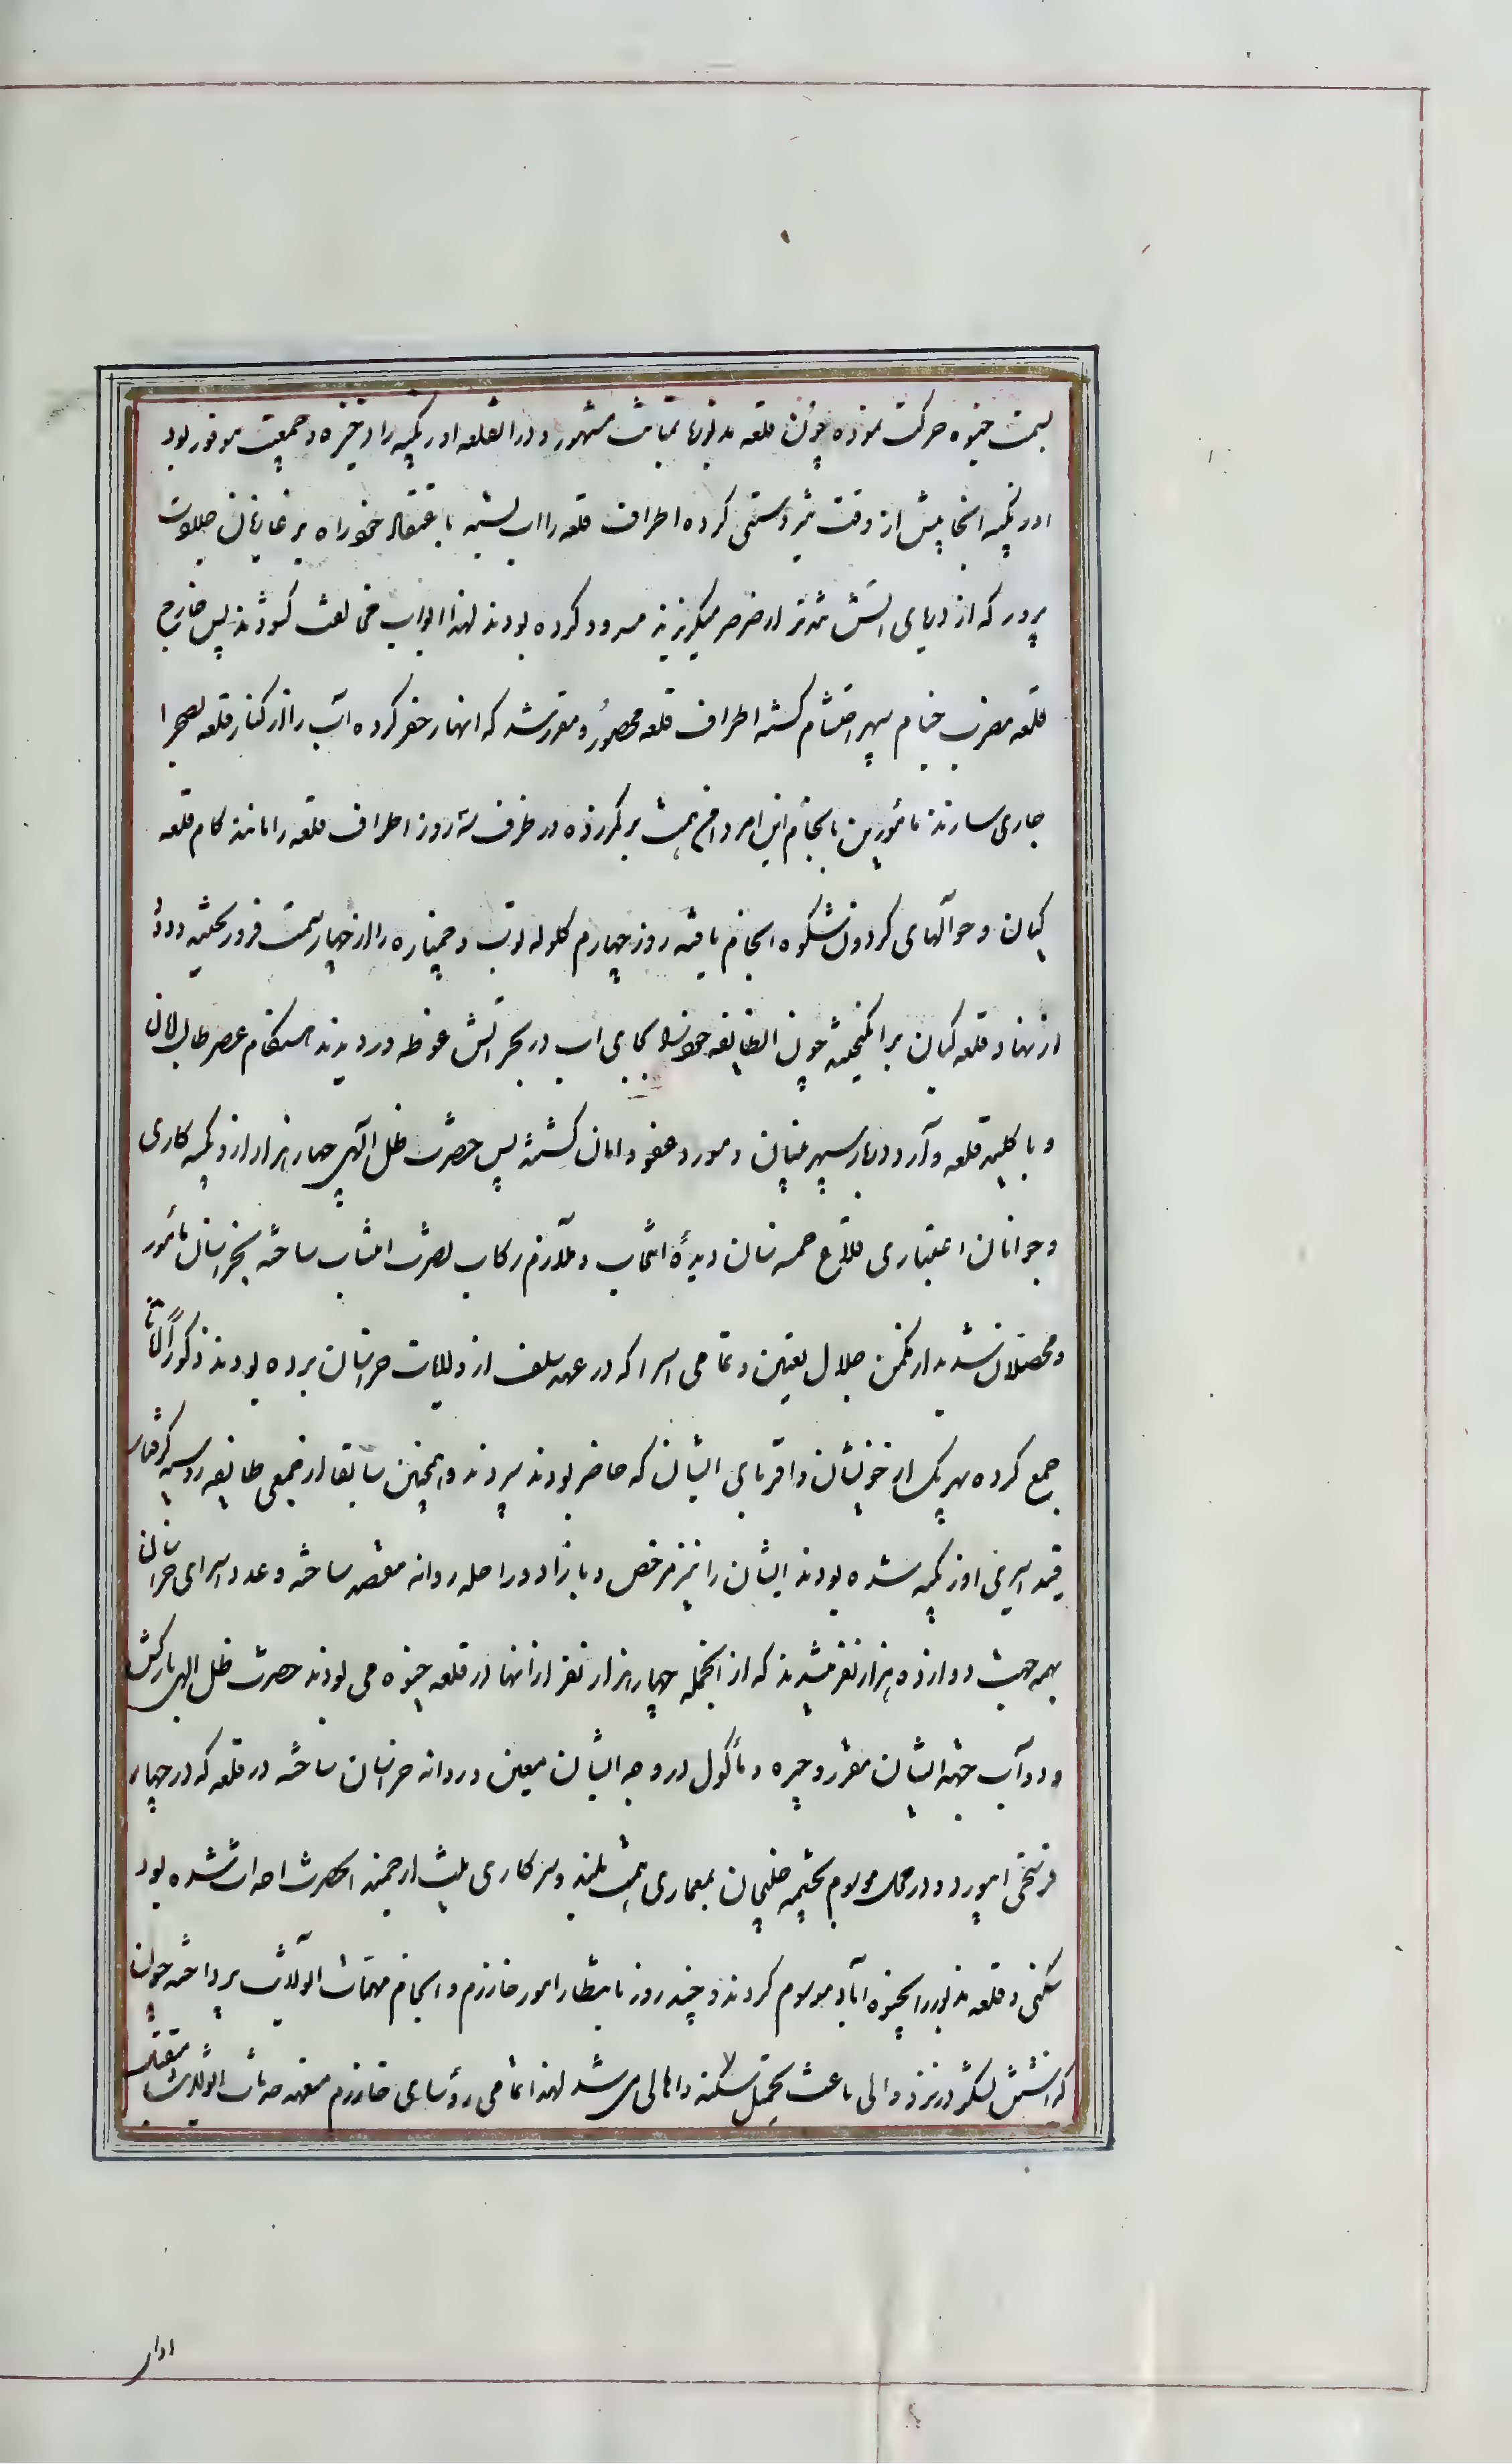 بسمت خیوه حرکت نموده چون قلعه مذبور بمتانت مشهور و در انقلعه اوزبکیه را ذخیره و جمعیت موفور بود
اوزبکیه انجا پیش از وقت تیزدستی کرده اطراف قلعه را اب بسته باعتقاد خود راه بر غازیان جلادت
پرور که از دریای اتش تندتر از صرصر میگریزند مسدود کرده بودند لهذا ابواب مخالفت کشودند پس خارج
قلعه مضرب خیام سپهر احتشام کشته اطراف قلعه محصور و مقرر شد که انهار حفر کرده آب را از کنار قلعه بصحرا
جاری سازند مأمورین بانجام این امر دامن همت بر کمر زده در ظرف سه روز اطراف قلعه را مانند کام قلعه
کیان و حوآلهای کردون شکوه انجام یافته روز چهارم کلوله توپ و خمپاره را از چهار سمت فرو ریخته دود
از نهاد قلعه کیان برانکیخته چون انطایفه خود را بجای اب در بحر اتش غوطه ور دیدند هنکام عصر طالب امان
و با کلید قلعه وآرد دربار سپهر بنیان و مورد عفو و امان کشته پس حضرت ظل آلهی چهار هزار از اوزبکیه کاری
و جوانان اعتباری قلاع خمسه سان دیدهٔ انتخاب و ملآزم رکاب نصرت انتساب ساخته بخراسان مأمور
و محصلان شدید از مکمن جلال تعیین و تمامی اسرا که در عهد سلف از ولایات خراسان برده بودند ذکوراً اناثاً
جمع کرده هر یک از خویشان و اقربای ایشان که حاضر بودند سپردند و همچنین سابقا از جمعی طایفه روسیه گرفتار
قید اسیری اوزبکیه شده بودند ایشان را نیز مرخص و با زاد و راحله روانه مقصد ساخته و عدد اسرای خراسان
بهمه جهت دوازده هزار نفر میشدند که از انجمله چهار هزار نفر از انها در قلعه خیوه می بودند حضرت ظل الهی بارکش
و دوآب جهة ایشان مقرر و جیره و مأکول در وجه ایشان معین و روانه خراسان ساخته در قلعه که در چهار
فرسخی ابیورد و در محل موسوم بچشمه خلیجان بمعماری همت بلند و سرکاری نیت ارجمند انحضرت احداث شده بود
سکنی و قلعه مذبور را بخیوه آباد موسوم کردند و چند روز بانتظار امور خارزم و انجام مهمات الولایت پرداخته چون
که کشش لشکر در نزد والی باعث تحمیل سکنه و اهالی می شد لهذا تمامی رؤسای خارزم متعهد خدمات الولایت متقبل
ادار